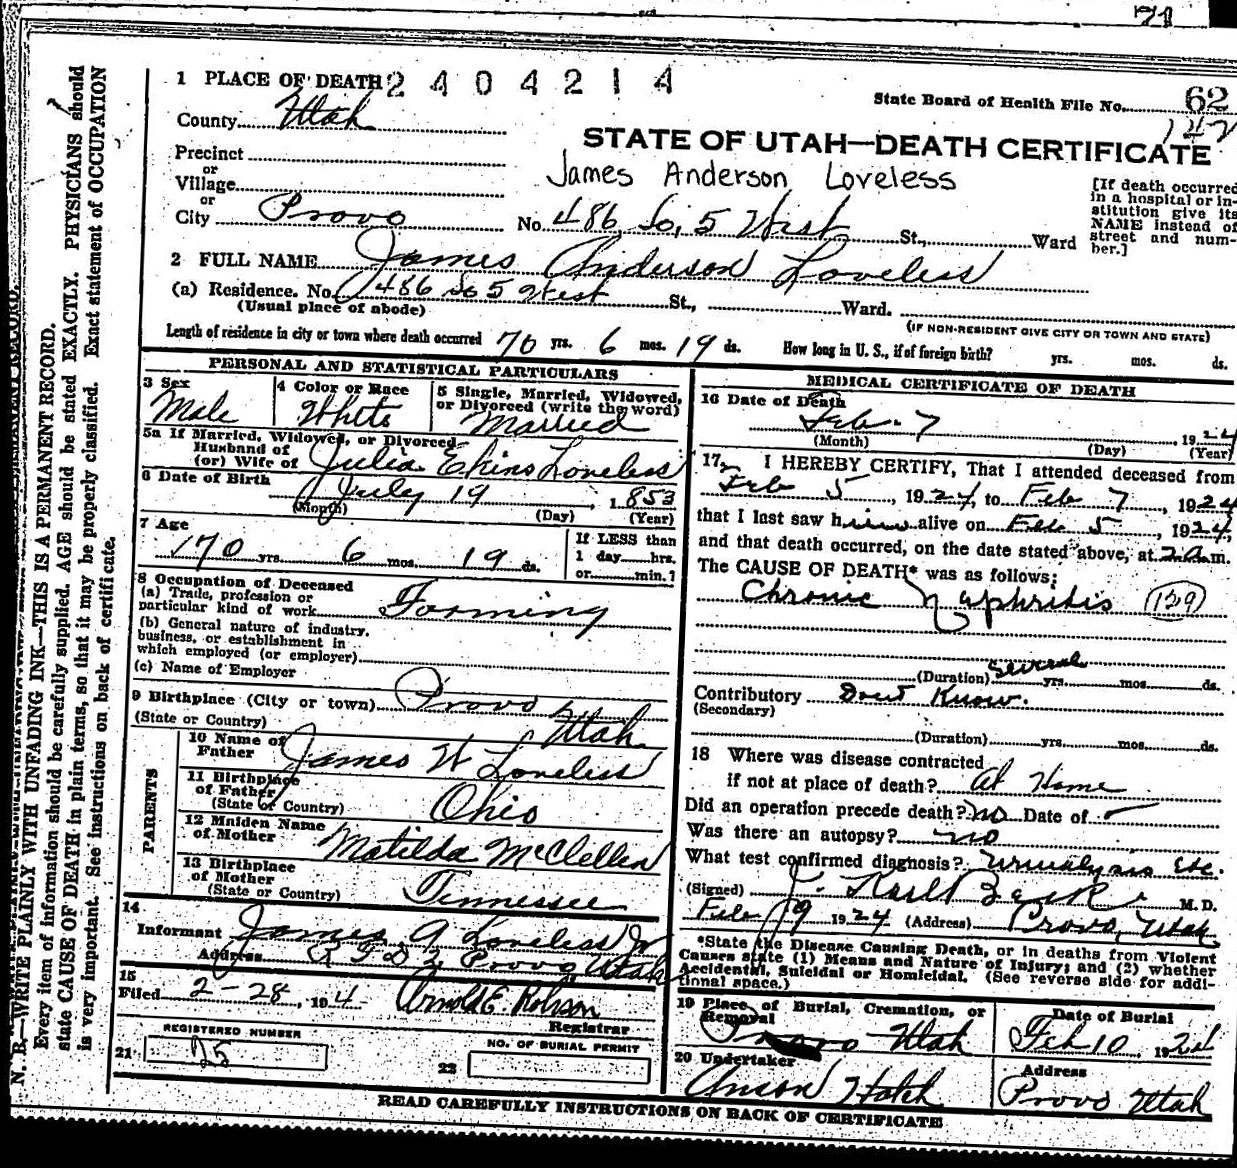 71
1 PLACE OF DEATH 2404214
State Board of Health File No. 62
County Utah
STATE OF UTAH—DEATH CERTIFICATE
Precinct
James Anderson Loveless
or
Village
or
City Provo
No. 486 So. 5 West St., Ward
[If death occurred
in a hospital or in-
stitution give its
NAME instead of
street and num-
ber.]
2 FULL NAME James Anderson Loveless
(a) Residence. No. 486 So 5 West St., Ward.
(Usual place of abode)
(IF NON-RESIDENT GIVE CITY OR TOWN AND STATE)
Length of residence in city or town where death occurred 70 yrs. 6 mos. 19 ds. How long in U. S., if of foreign birth? yrs. mos. ds.
PERSONAL AND STATISTICAL PARTICULARS
3 Sex
Male
4 Color or Race
White
5 Single, Married, Widowed,
or Divorced (write the word)
Married
5a If Married, Widowed, or Divorced
Husband of
(or) Wife of Julia Ekins Loveless
6 Date of Birth
July 19, 1853
(Month) (Day) (Year)
7 Age
70 yrs. 6 mos. 19 ds.
If LESS than
1 day hrs.
or min.?
8 Occupation of Deceased
(a) Trade, profession or
particular kind of work Farming
(b) General nature of industry,
business, or establishment in
which employed (or employer)
(c) Name of Employer
9 Birthplace (City or town) Provo
(State or Country) Utah
PARENTS
10 Name of
Father James W Loveless
11 Birthplace
of Father
(State or Country) Ohio
12 Maiden Name
of Mother Matilda McClellen
13 Birthplace
of Mother
(State or Country) Tennessee
14
Informant James A Loveless Jr
Address R F D 2 Provo Utah
15
Filed 2-28, 194 Arnold E. Robison
Registrar
REGISTERED NUMBER
21 25
NO. OF BURIAL PERMIT
22
MEDICAL CERTIFICATE OF DEATH
16 Date of Death
Feb. 7, 1924
(Month) (Day) (Year)
17 I HEREBY CERTIFY, That I attended deceased from
Feb 5, 1924, to Feb 7, 1924
that I last saw him alive on Feb 5, 1924,
and that death occurred, on the date stated above, at 2 a m.
The CAUSE OF DEATH* was as follows:
Chronic Nephritis (129)
(Duration) Several yrs. mos. ds.
Contributory Dont Know.
(Secondary)
(Duration) yrs. mos. ds.
18 Where was disease contracted
if not at place of death? at Home
Did an operation precede death? no Date of
Was there an autopsy? no
What test confirmed diagnosis? Urinalysis Etc.
(Signed) J. Karl M. D.
Feb 19 1924 (Address) Provo, Utah
*State the Disease Causing Death, or in deaths from Violent
Causes state (1) Means and Nature of Injury; and (2) whether
Accidental, Suicidal or Homicidal. (See reverse side for addi-
tional space.)
19 Place of Burial, Cremation, or
Removal
Provo Utah
Date of Burial
Feb 10, 1924
20 Undertaker
Anson Hatch
Address
Provo Utah
READ CAREFULLY INSTRUCTIONS ON BACK OF CERTIFICATE
N. B.—WRITE PLAINLY WITH UNFADING INK—THIS IS A PERMANENT RECORD.
Every item of information should be carefully supplied. AGE should be stated EXACTLY. PHYSICIANS should
state CAUSE OF DEATH in plain terms, so that it may be properly classified. Exact statement of OCCUPATION
is very important. See instructions on back of certificate.